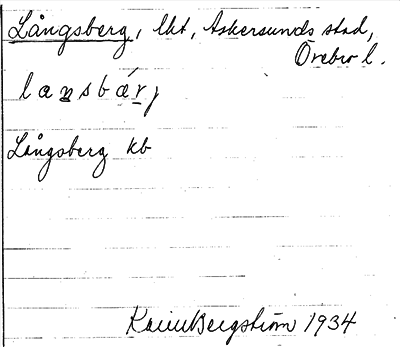 Långsberg, lht, Askersunds stad,
Örebro l.
lansbärj
Långsberg kb
Karin Bergström 1934